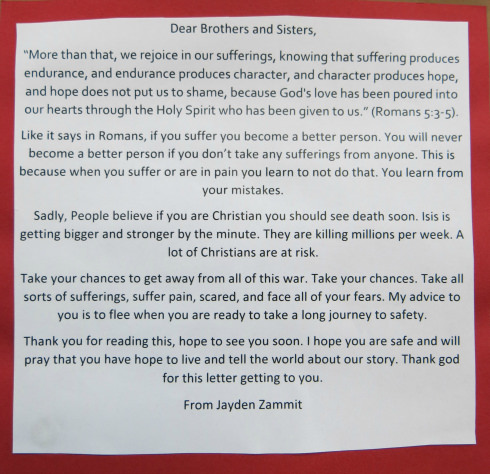 Dear Brothers and Sisters,
“More than that, we rejoice in our sufferings, knowing that suffering produces
endurance, and endurance produces character, and character produces hope,
and hope does not put us to shame, because God's love has been poured into
our hearts through the Holy Spirit who has been given to us.” (Romans 5:3-5).
Like it says in Romans, if you suffer you become a better person. You will never
become a better person if you don’t take any sufferings from anyone. This is
because when you suffer or are in pain you learn to not do that. You learn from
your mistakes.
Sadly, People believe if you are Christian you should see death soon. Isis is
getting bigger and stronger by the minute. They are killing millions per week. A
lot of Christians are at risk.
Take your chances to get away from all of this war. Take your chances. Take all
sorts of sufferings, suffer pain, scared, and face all of your fears. My advice to
you is to flee when you are ready to take a long journey to safety.
Thank you for reading this, hope to see you soon. I hope you are safe and will
pray that you have hope to live and tell the world about our story. Thank god
for this letter getting to you.
From Jayden Zammit